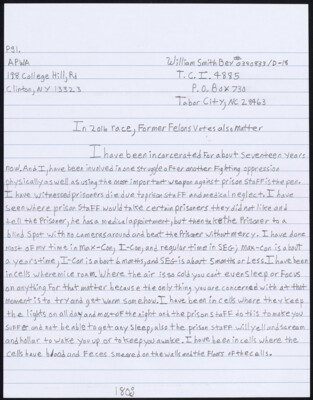 Pg1.
APWA
198 College Hill, Rd
Clinton, N.Y. 13323
William Smith Bey #
T. C. I. 4885
P.O. Box 730
Tabor City, NC 28463
In 2016 race, Former Felons Votes also matter
I have been incarcerated for about Seventeen years
now. And I, have been involved in one struggle after another Fighting oppression
physically as well as using the most important weapon against prison staff is the pen.
I have witnessed prisoners die due to prison staff and medical neglect. I have
seen where prison staff would take certain prisoners they did not like and
tell the Prisoner, he has a medical appointment, but then take the Prisoner to a
blind spot with no cameras around and beat the Prisoner without mercy. I have done
most of my time in Max-Con, I-Con, and regular time in SEG; Max-Con is about
a years time, I-Con is about 6 months, and SEG is about 5 months or Less. I have been
in cells where mise room. Where the air is so cold you can't ever sleep or Focus
on anything for that matter because the only thing you are concerned with at that
moment is to try and get warm somehow. I have been in cells where they keep
the lights on all day and most of the night and the prison staff do this to make you
suffer and not be able to get any sleep, also the prison staff will yell and scream
and hollar to wake you up or to keep you awake. I have been in cells where the
cells have blood and Feces smeared on the walls and the Floors of the cells.